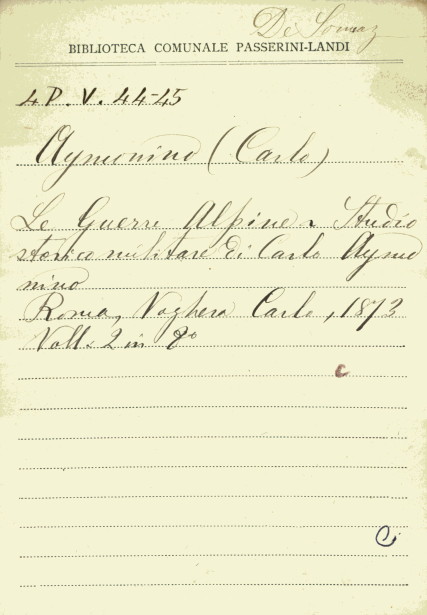 De Sonnaz
BIBLIOTECA COMUNALE PASSERINI-LANDI
4 P. V. 44-45
Aymonino (Carlo)
Le Guerre Alpine. Studio
storico militare di Carlo Aymo
nino
Roma, Voghera Carlo, 1873
Voll. 2 in 8º
c